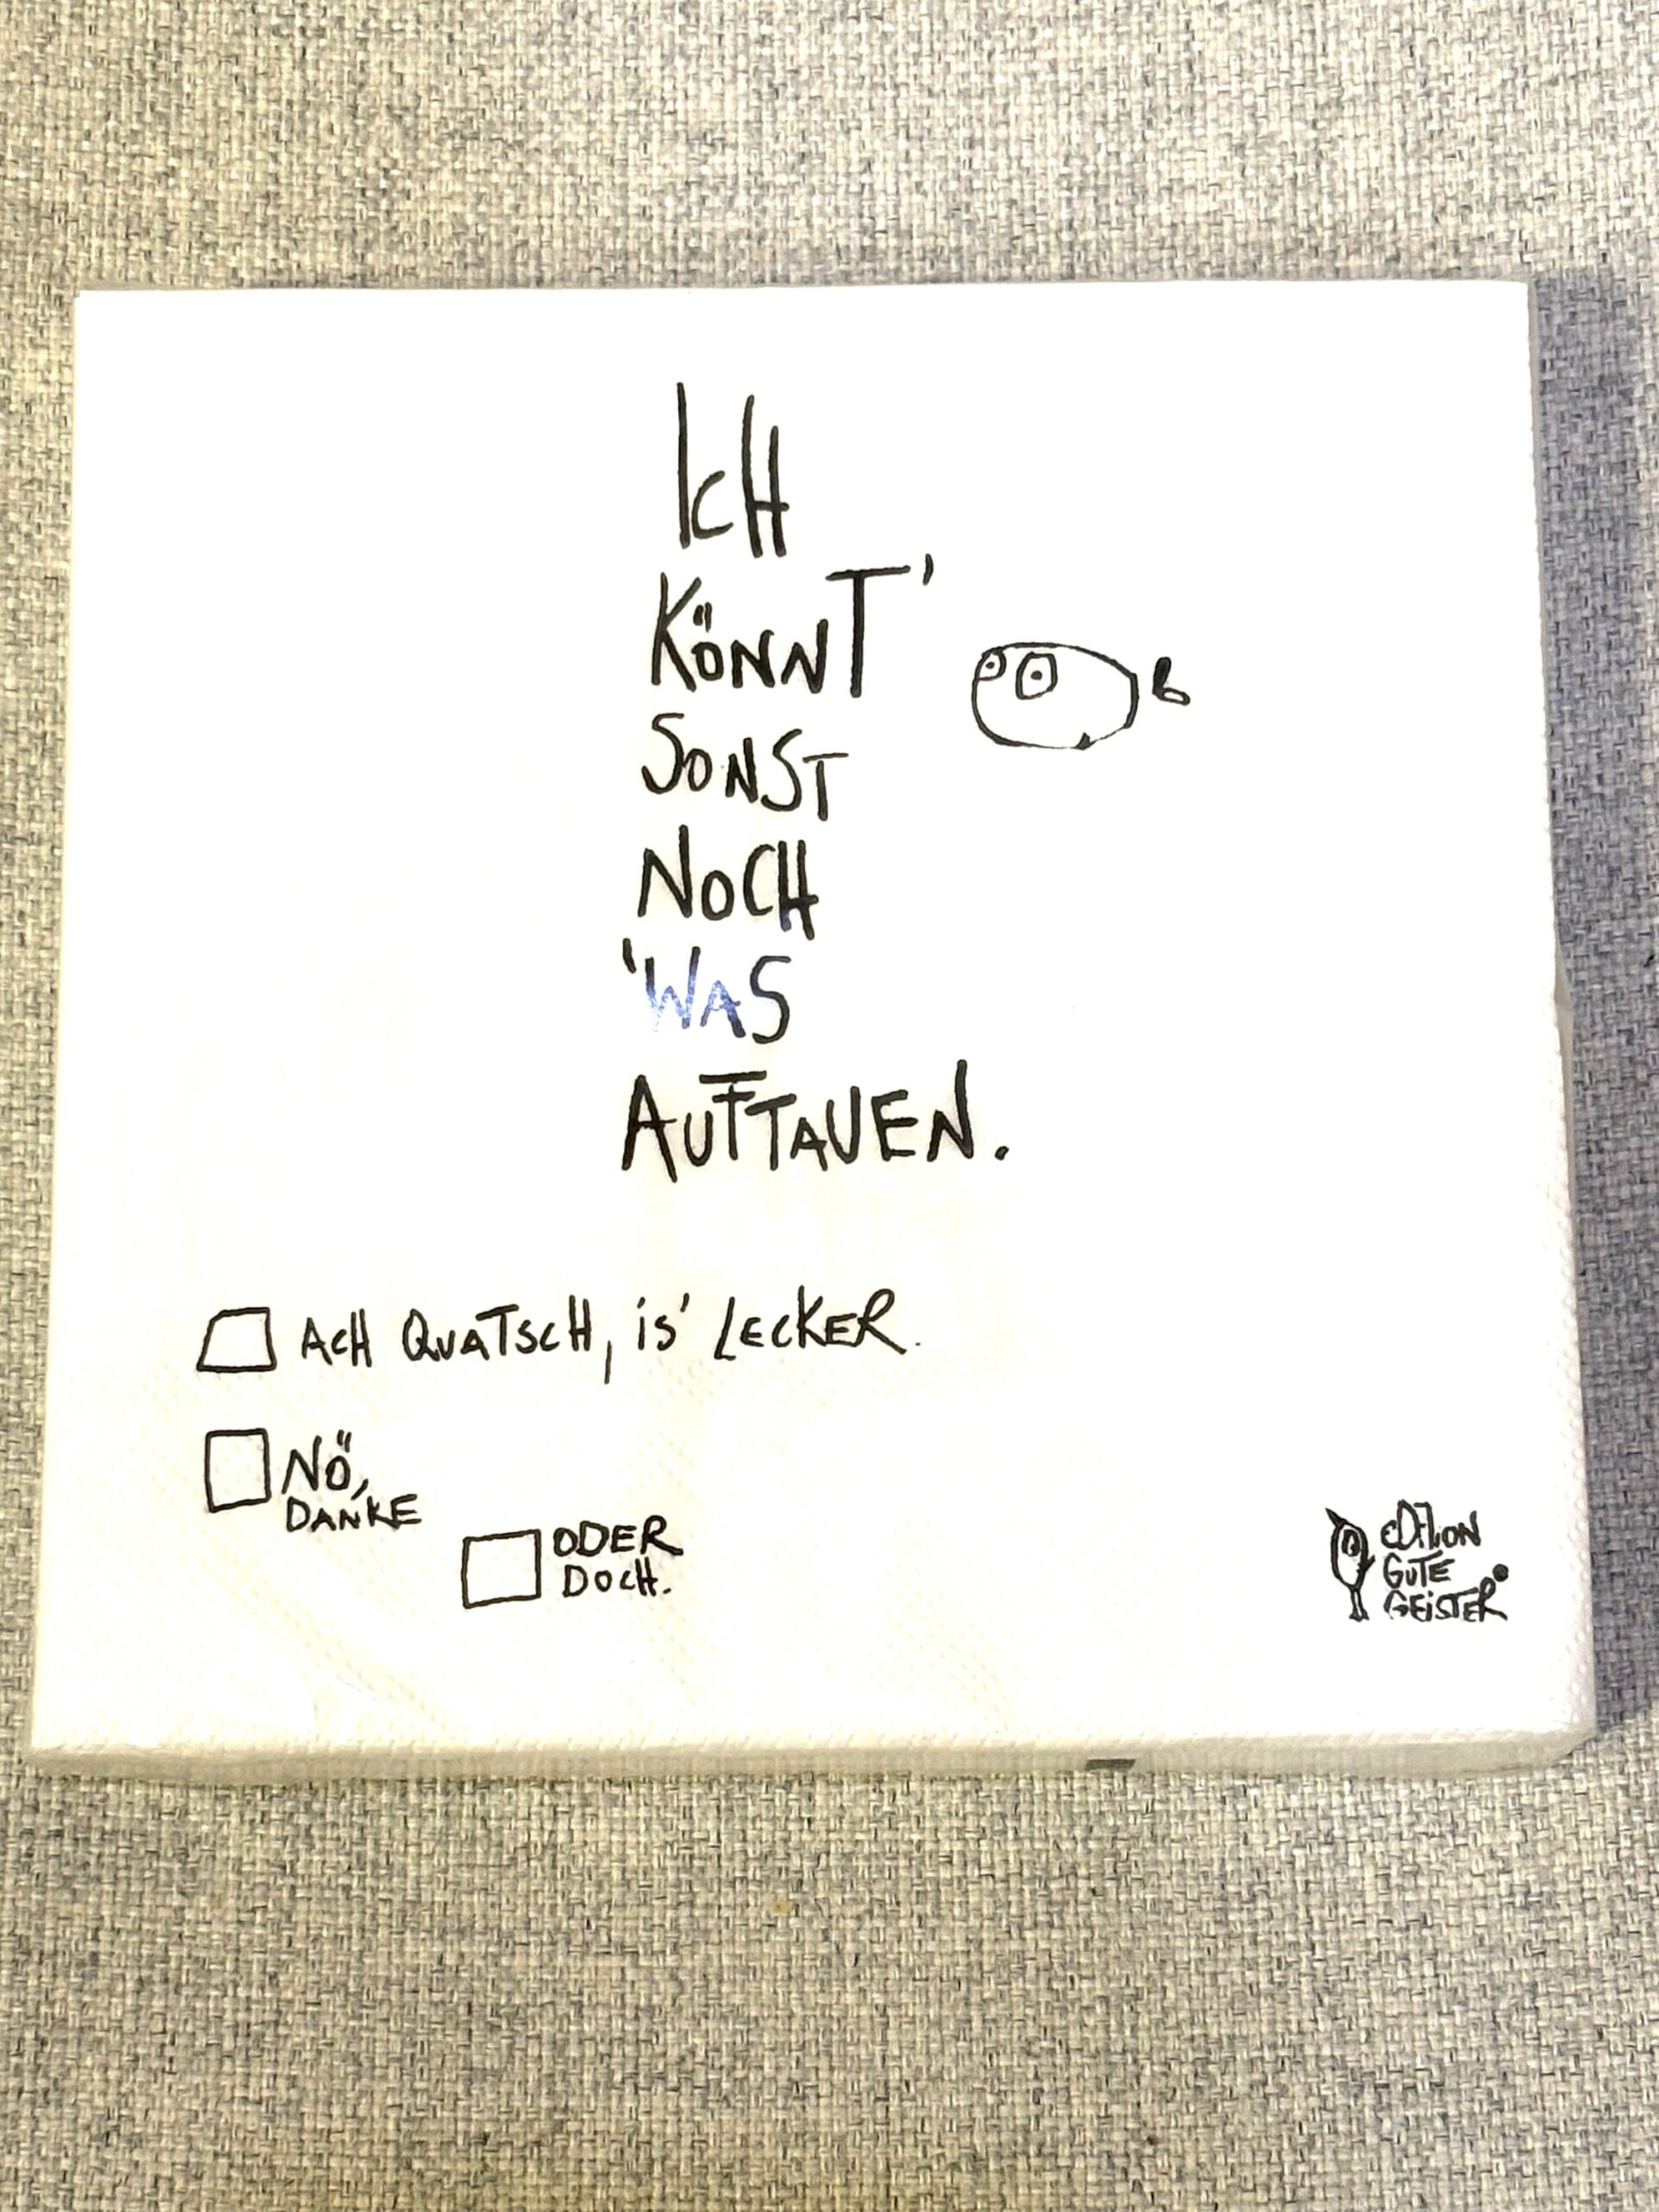 ICH
KÖNNT'
SONST
NOCH
'WAS
AUFTAUEN.
ACH QUATSCH, is' LECKER.
NÖ,
DANKE
ODER
DOCH.
EDITION
GUTE
GEiSTER